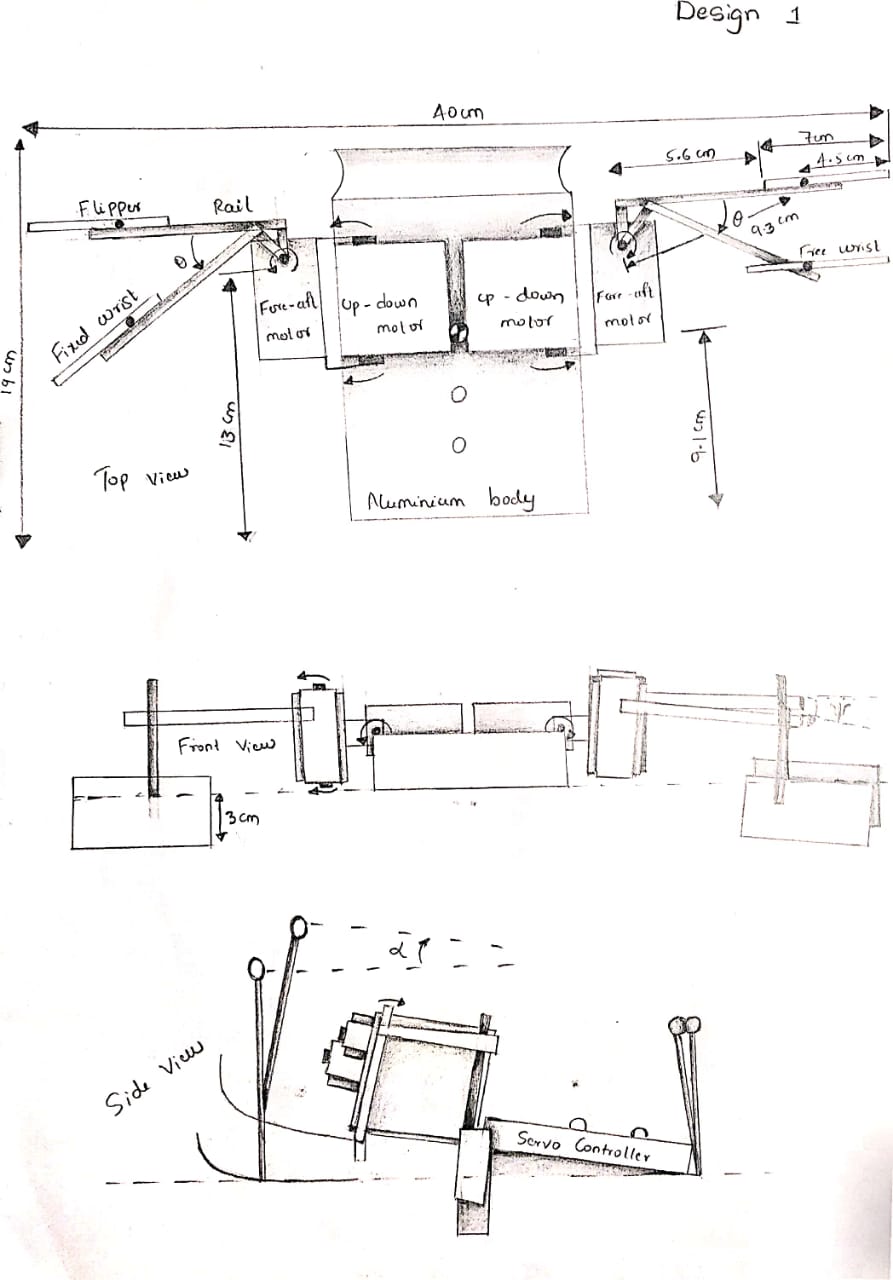 Design 1
40cm
7cm
5.6cm
4.5cm
Flipper
Rail
θ
θ
9.3cm
Free wrist
Fixed wrist
Fore-aft
motor
Up-down
motor
up-down
motor
Fore-aft
motor
19cm
13cm
9.1cm
Top View
Aluminium body
Front View
3cm
α
Side View
Servo Controller